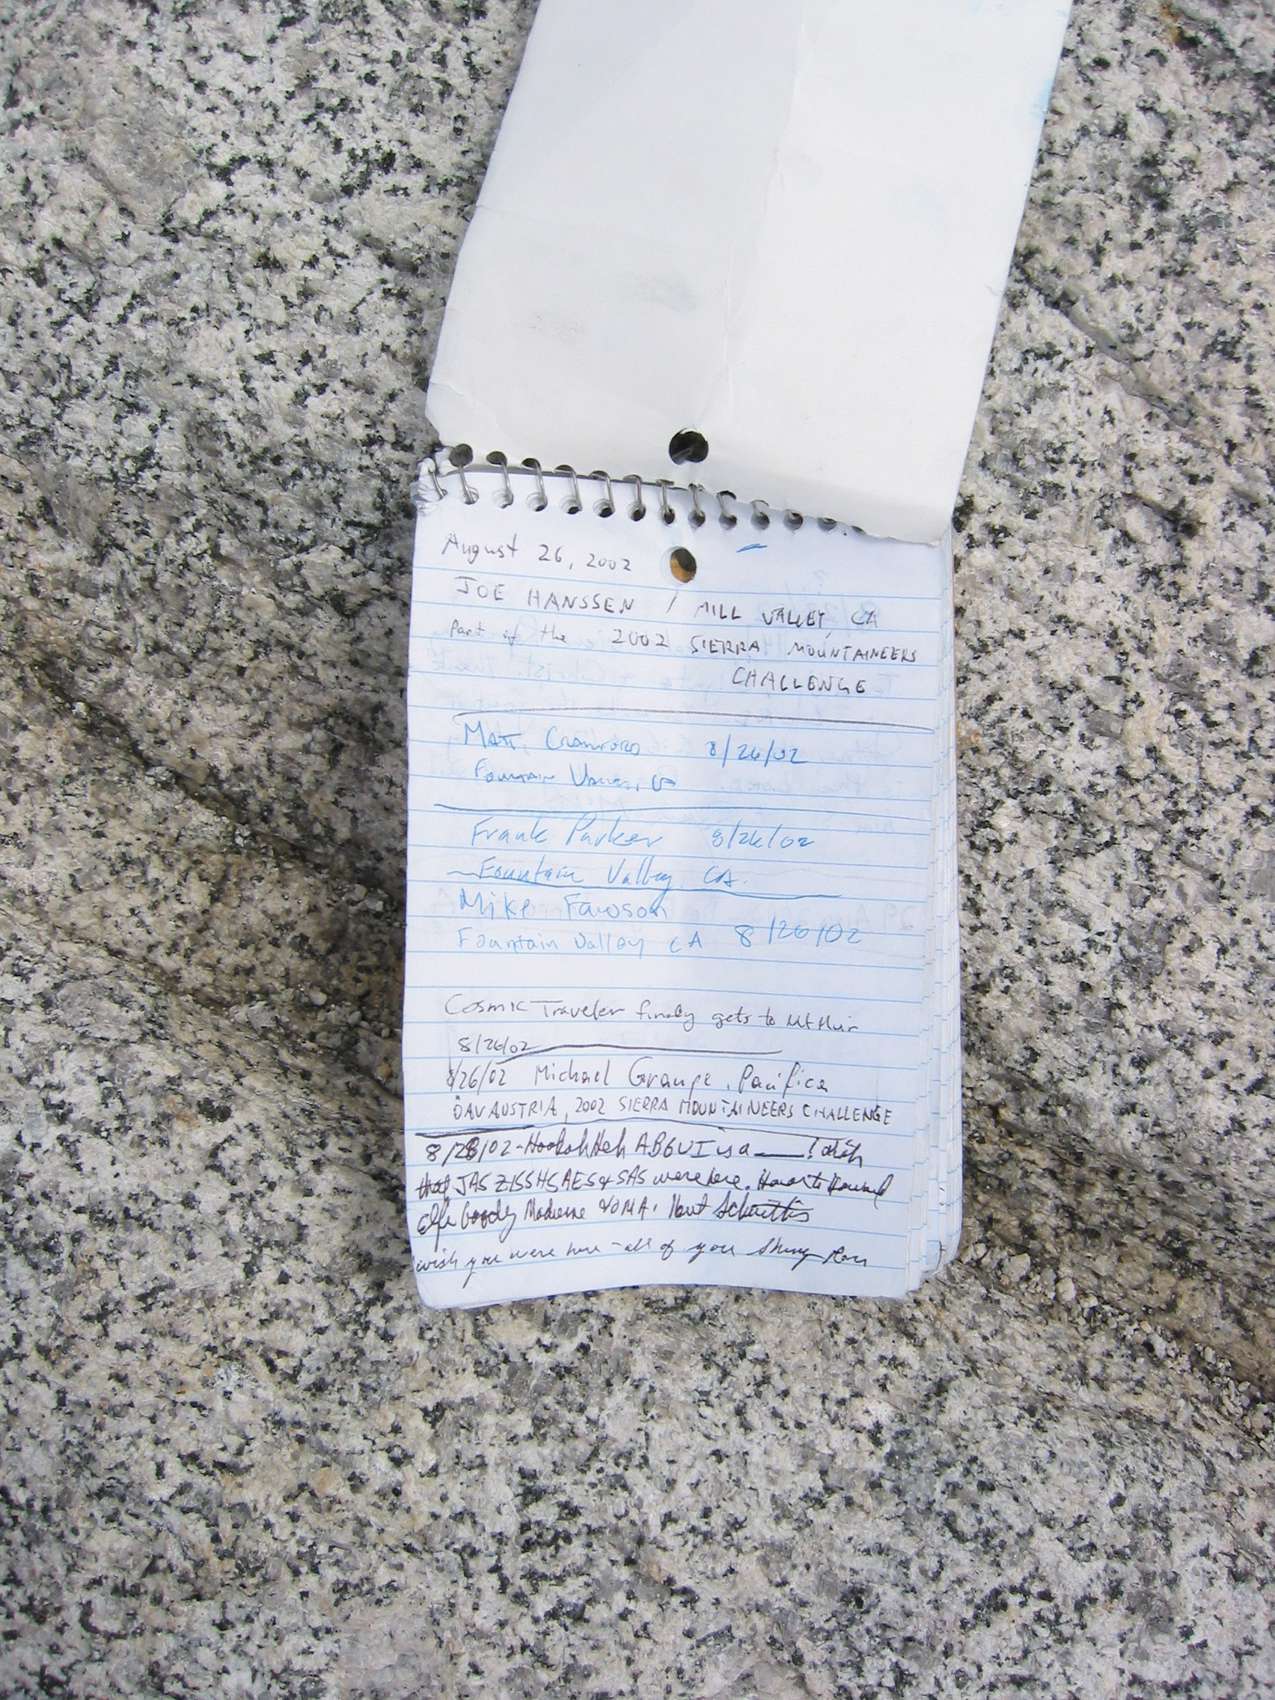 August 26, 2002
JOE HANSSEN / MILL VALLEY, CA
Part of the 2002 SIERRA MOUNTAINEERS
CHALLENGE
Matt Crawford 8/26/02
Fountain Valley, CA
Frank Parker 8/26/02
Fountain Valley, CA.
Mike Fawson
Fountain Valley CA 8/26/02
Cosmic Traveler finally gets to Mt Muir
8/26/02
8/26/02 Michael Grange, Pacifica
ÖAV AUSTRIA, 2002 SIERRA MOUNTAINEERS CHALLENGE
8/28/02 - is a
JAS were here.
Medicine
wish you were here - all of you